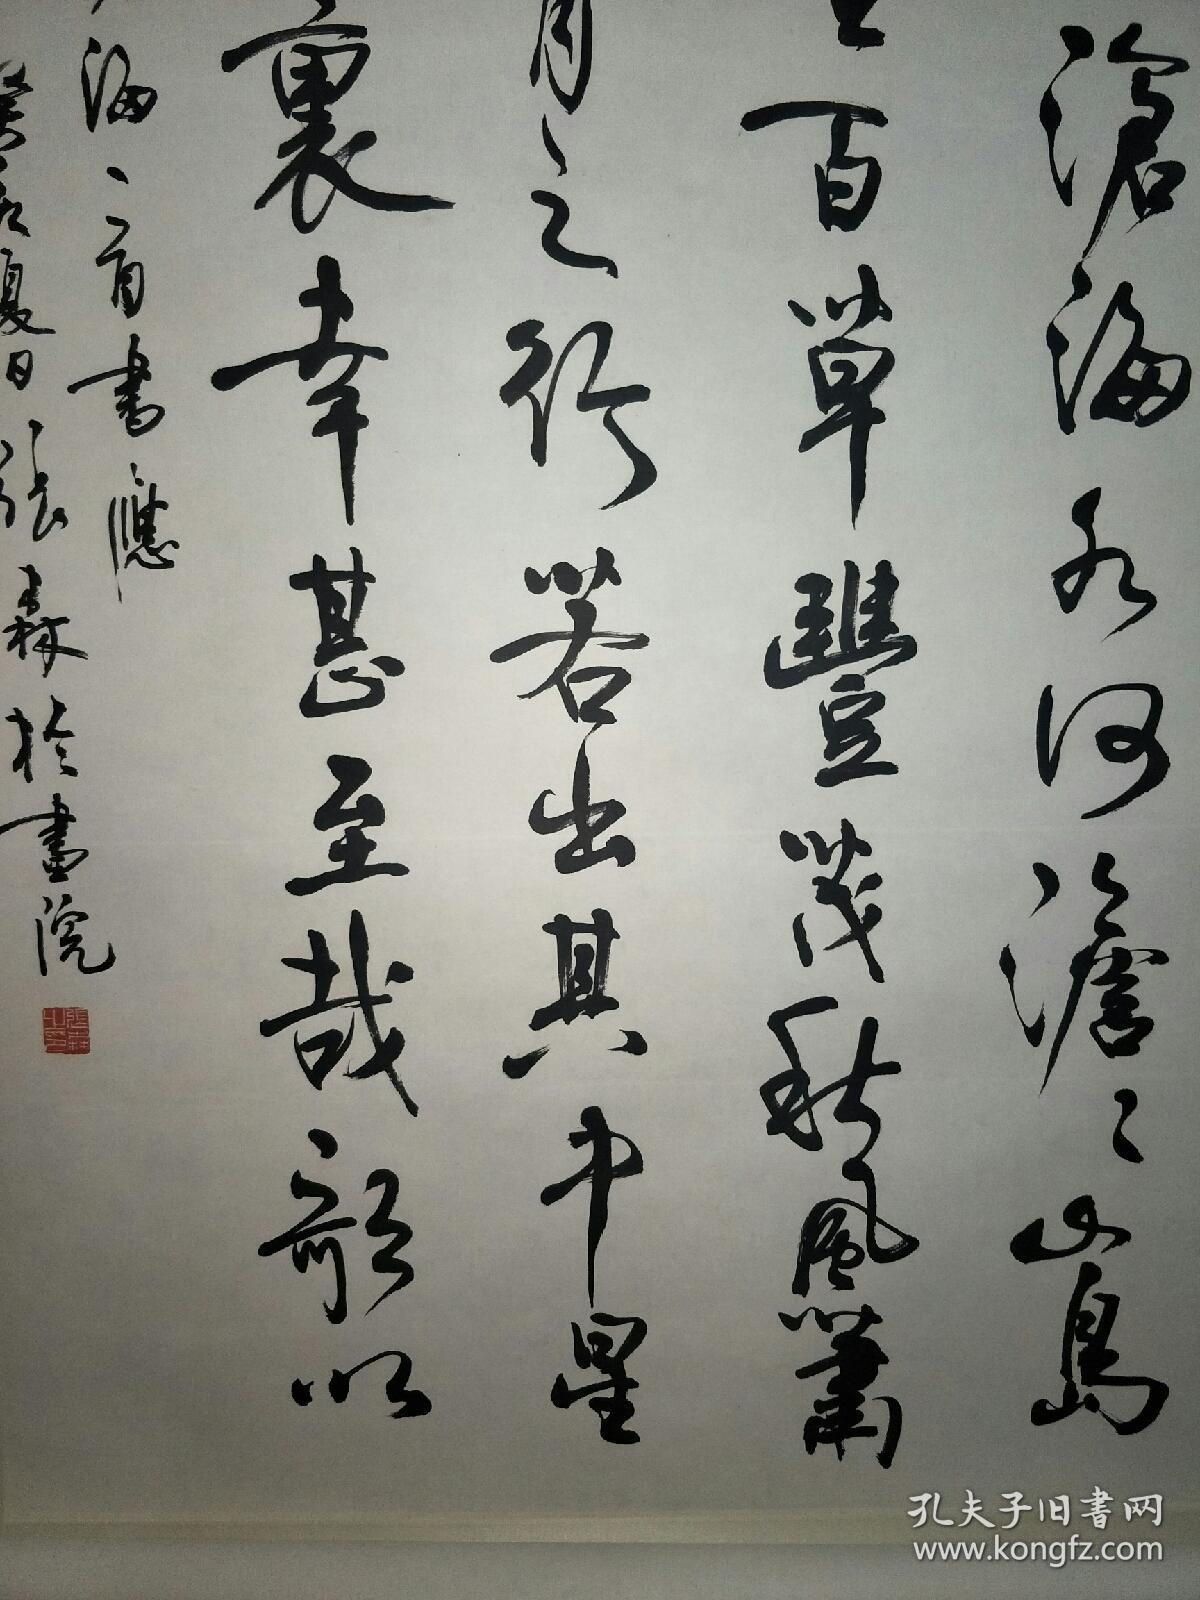 滄海水何澹々山島
百草豐茂秋風蕭
月之行若出其中星
裏幸甚至哉歌以
海一首書應
癸夏日張森於畫院
張森之印
孔夫子旧書网
www.kongfz.com